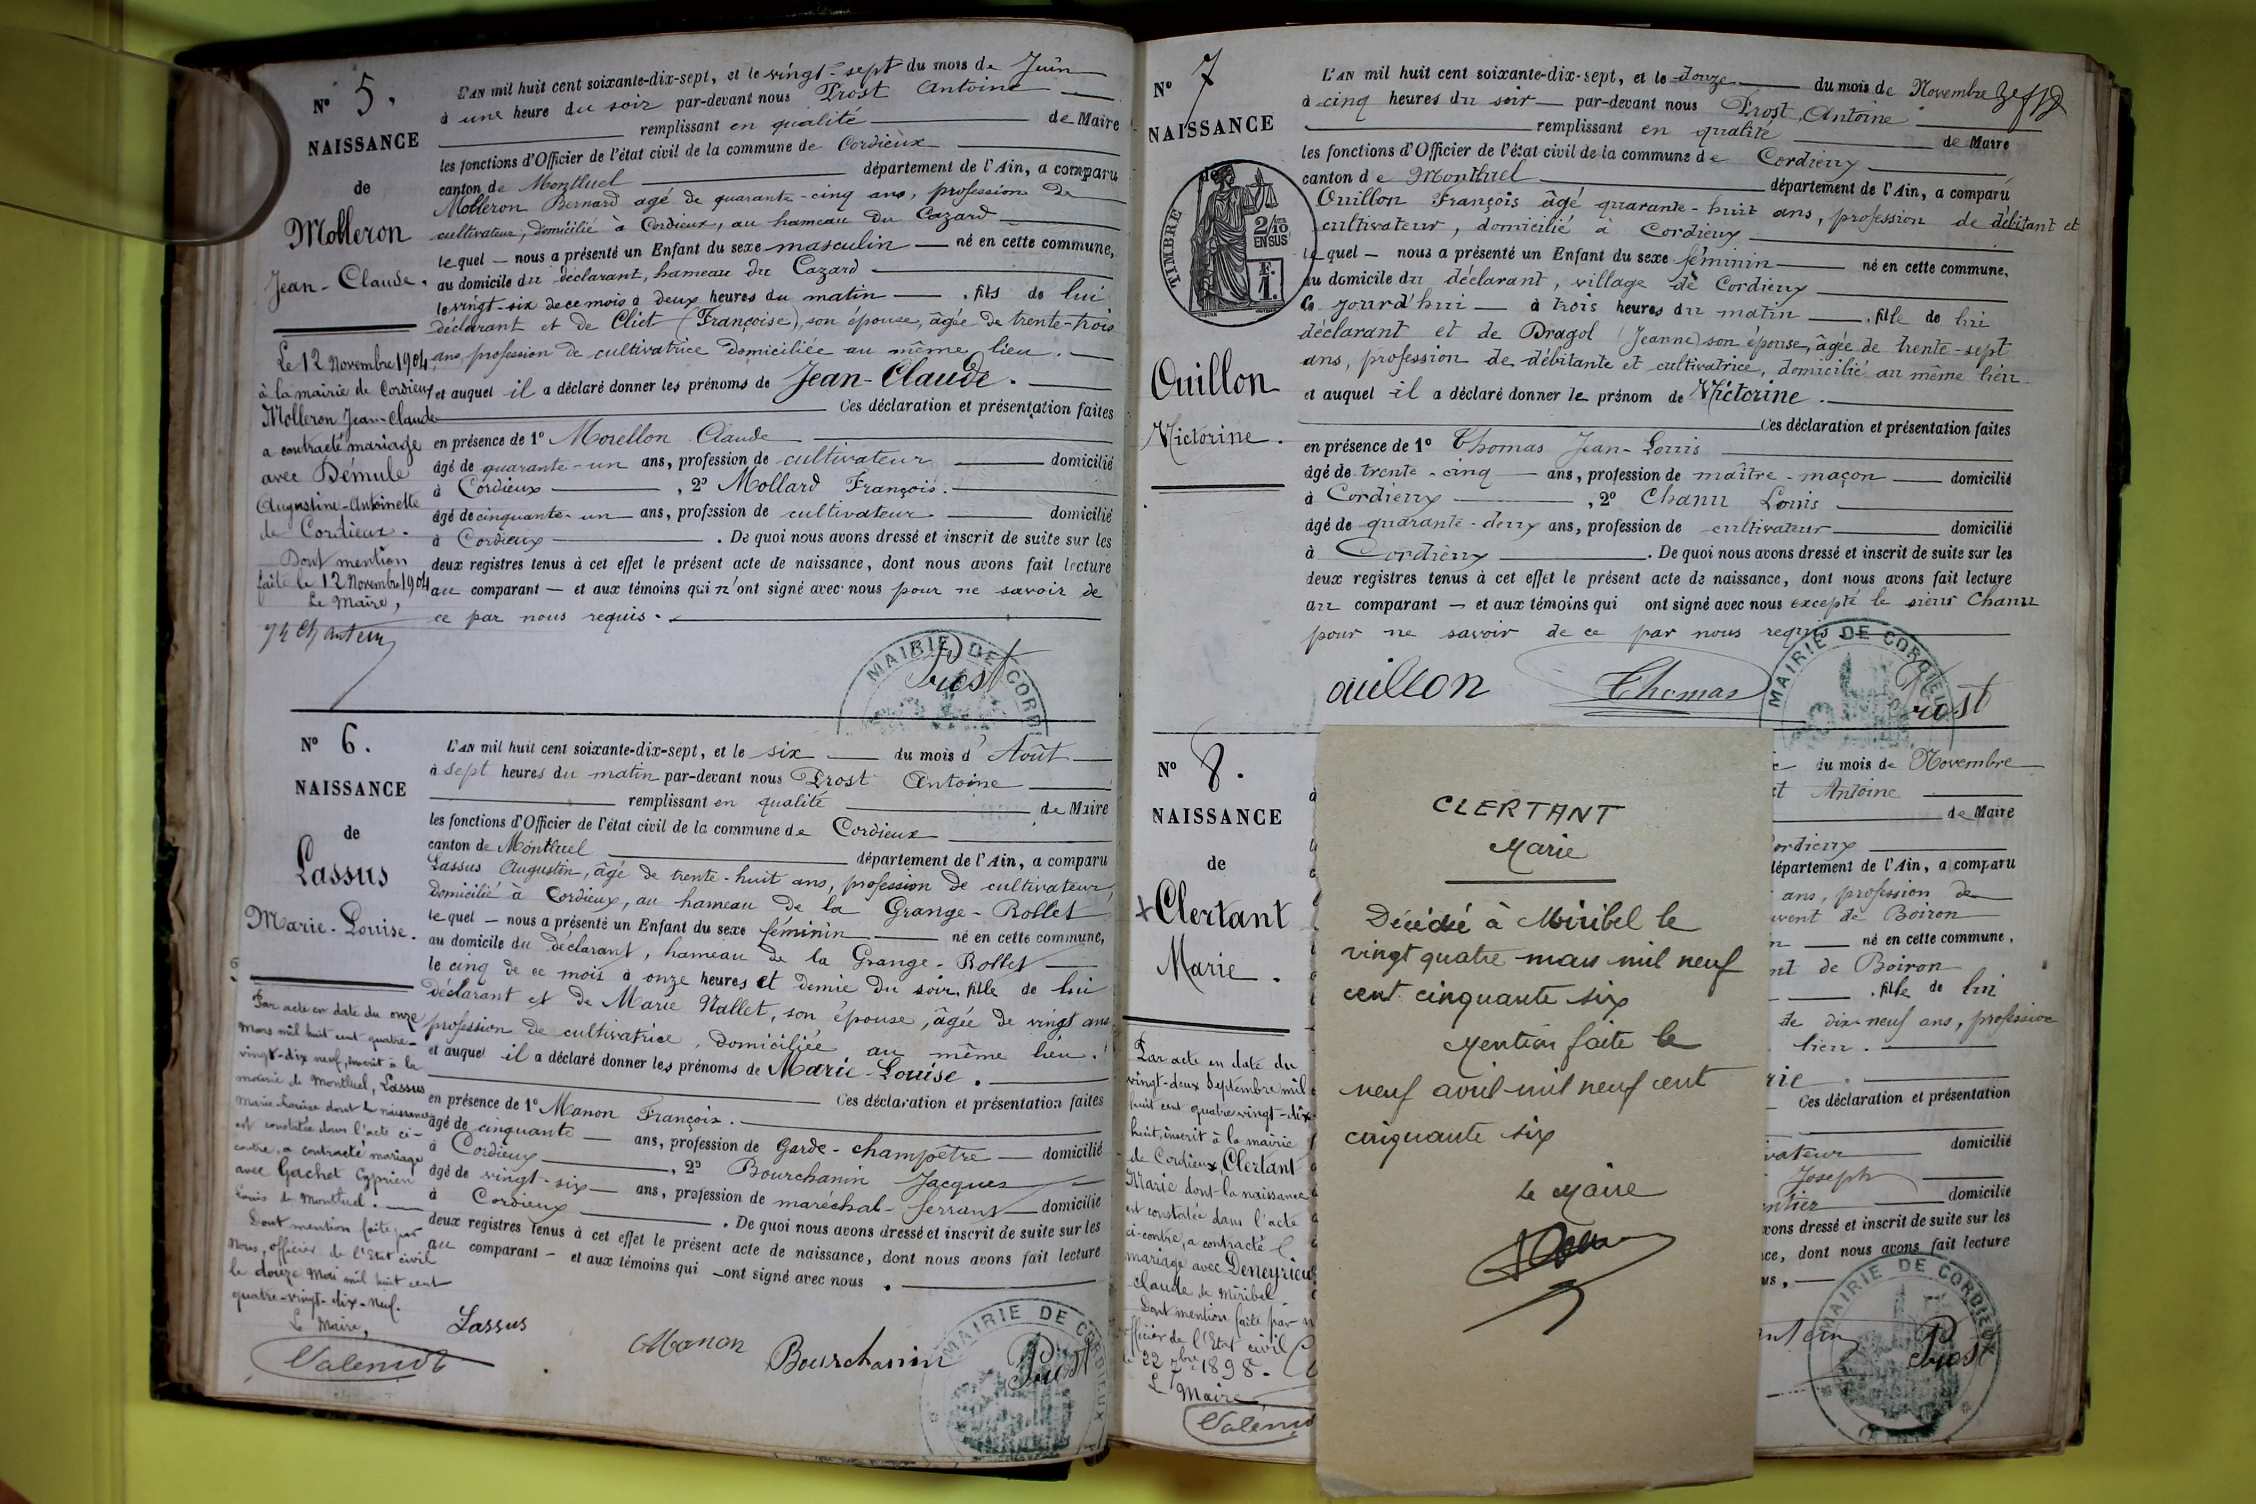 N° 5.
NAISSANCE
de
Molleron
Jean-Claude.
Le 12 Novembre 1904
à la mairie de Cordieux
Molleron Jean-Claude
a contracté mariage
avec Démule
Augustine-Antoinette
de Cordieux.
Dont mention
faite le 12 Novembre 1904
Le Maire,
L'AN mil huit cent soixante-dix-sept, et le vingt-sept du mois de Juin
à une heure du soir par-devant nous Prost Antoine
remplissant en qualité de Maire
les fonctions d'Officier de l'état civil de la commune de Cordieux
canton de Montluel département de l'Ain, a comparu
Molleron Bernard agé de quarante-cinq ans, profession de
cultivateur, domicilié à Cordieux, au hameau du Cazard
lequel — nous a présenté un Enfant du sexe masculin — né en cette commune,
au domicile du déclarant, hameau du Cazard
le vingt-six de ce mois à deux heures du matin — . fils de lui
déclarant et de Cliet (Françoise), son épouse, âgée de trente-trois
ans, profession de cultivatrice domiciliée au même lieu.
et auquel il a déclaré donner les prénoms de Jean-Claude.
Ces déclaration et présentation faites
en présence de 1° Morellon Claude
âgé de quarante-un ans, profession de cultivateur domicilié
à Cordieux , 2° Mollard François.
âgé de cinquante-un ans, profession de cultivateur domicilié
à Cordieux . De quoi nous avons dressé et inscrit de suite sur les
deux registres tenus à cet effet le présent acte de naissance, dont nous avons fait lecture
au comparant — et aux témoins qui n'ont signé avec nous pour ne savoir de
ce par nous requis.
MAIRIE DE CORD
Prost
N° 6.
NAISSANCE
de
Lassus
Marie-Louise.
Par acte en date du onze
Mars mil huit cent quatre-
vingt-dix neuf, inscrit à la
mairie de Montluel, Lassus
Marie-Louise dont la naissance
est constatée dans l'acte ci-
contre, a contracté mariage
avec Gachet Cyprien
Louis de Montluel.
Dont mention faite par
Nous, officier de l'Etat civil
le douze Mars mil huit cent
quatre-vingt-dix-neuf.
Le Maire,
L'AN mil huit cent soixante-dix-sept, et le six du mois d'Août
à sept heures du matin par-devant nous Prost Antoine
remplissant en qualité de Maire
les fonctions d'Officier de l'état civil de la commune de Cordieux
canton de Montluel département de l'Ain, a comparu
Lassus Augustin, âgé de trente-huit ans, profession de cultivateur,
domicilié à Cordieux, au hameau de la Grange-Rollet
lequel — nous a présenté un Enfant du sexe féminin né en cette commune,
au domicile du déclarant, hameau de la Grange-Rollet
le cinq de ce mois à onze heures et demie du soir, fille de lui
déclarant et de Marie Nallet, son épouse, âgée de vingt ans
profession de cultivatrice, domiciliée au même lieu.
et auquel il a déclaré donner les prénoms de Marie-Louise.
Ces déclaration et présentation faites
en présence de 1° Manon François.
âgé de cinquante ans, profession de Garde-champêtre domicilié
à Cordieux , 2° Bourchanin Jacques
âgé de vingt-six ans, profession de maréchal-ferrant domicilié
à Cordieux . De quoi nous avons dressé et inscrit de suite sur les
deux registres tenus à cet effet le présent acte de naissance, dont nous avons fait lecture
au comparant — et aux témoins qui ont signé avec nous.
Lassus
Manon
Bourchanin
Prost
MAIRIE DE CORDIEUX
N° 7
NAISSANCE
de
TIMBRE
2/10 EN SUS
F. 1.
Ouillon
Victorine.
L'AN mil huit cent soixante-dix-sept, et le douze du mois de Novembre
à cinq heures du soir — par-devant nous Prost Antoine
remplissant en qualité de Maire
les fonctions d'Officier de l'état civil de la commune de Cordieux
canton de Montluel département de l'Ain, a comparu
Ouillon François âgé quarante-huit ans, profession de débitant et
cultivateur, domicilié à Cordieux
lequel — nous a présenté un Enfant du sexe féminin né en cette commune,
au domicile du déclarant, village de Cordieux
ce jourd'hui — à trois heures du matin — , fille de lui
déclarant et de Dragol (Jeanne) son épouse, âgée de trente-sept
ans, profession de débitante et cultivatrice, domicilié au même lieu
et auquel il a déclaré donner le prénom de Victorine.
Ces déclaration et présentation faites
en présence de 1° Thomas Jean-Louis
âgé de trente-cinq ans, profession de maître-maçon domicilié
à Cordieux , 2° Chanu Louis
âgé de quarante-deux ans, profession de cultivateur domicilié
à Cordieux . De quoi nous avons dressé et inscrit de suite sur les
deux registres tenus à cet effet le présent acte de naissance, dont nous avons fait lecture
au comparant — et aux témoins qui ont signé avec nous excepté le sieur Chanu
pour ne savoir de ce par nous requis
MAIRIE DE CORDIEUX
ouillon
Thomas
Prost
N° 8.
NAISSANCE
de
Clertant
Marie.
Par acte en date du
vingt-deux Septembre mil
huit cent quatre vingt-dix-
huit, inscrit à la mairie
de Cordieux, Clertant
Marie dont la naissance
est constatée dans l'acte
ci-contre, a contracté
mariage avec Deneyrieu
Claude de Miribel
Dont mention faite par
officier de l'Etat civil
22 7bre 1898.
Le Maire
CLERTANT
Marie
Décédée à Miribel le
vingt quatre mars mil neuf
cent cinquante six
Mention faite le
neuf avril mil neuf cent
cinquante six
Le Maire
du mois de Novembre
Antoine
de Maire
ordieux
département de l'Ain, a comparu
ans, profession de
de Boiron
né en cette commune,
de Boiron
, fille de lui
de dix-neuf ans, profession
lieu.
rie
Ces déclaration et présentation
domicilié
Joseph
domicilié
avons dressé et inscrit de suite sur les
ce, dont nous avons fait lecture
MAIRIE DE CORDIEUX
Prost